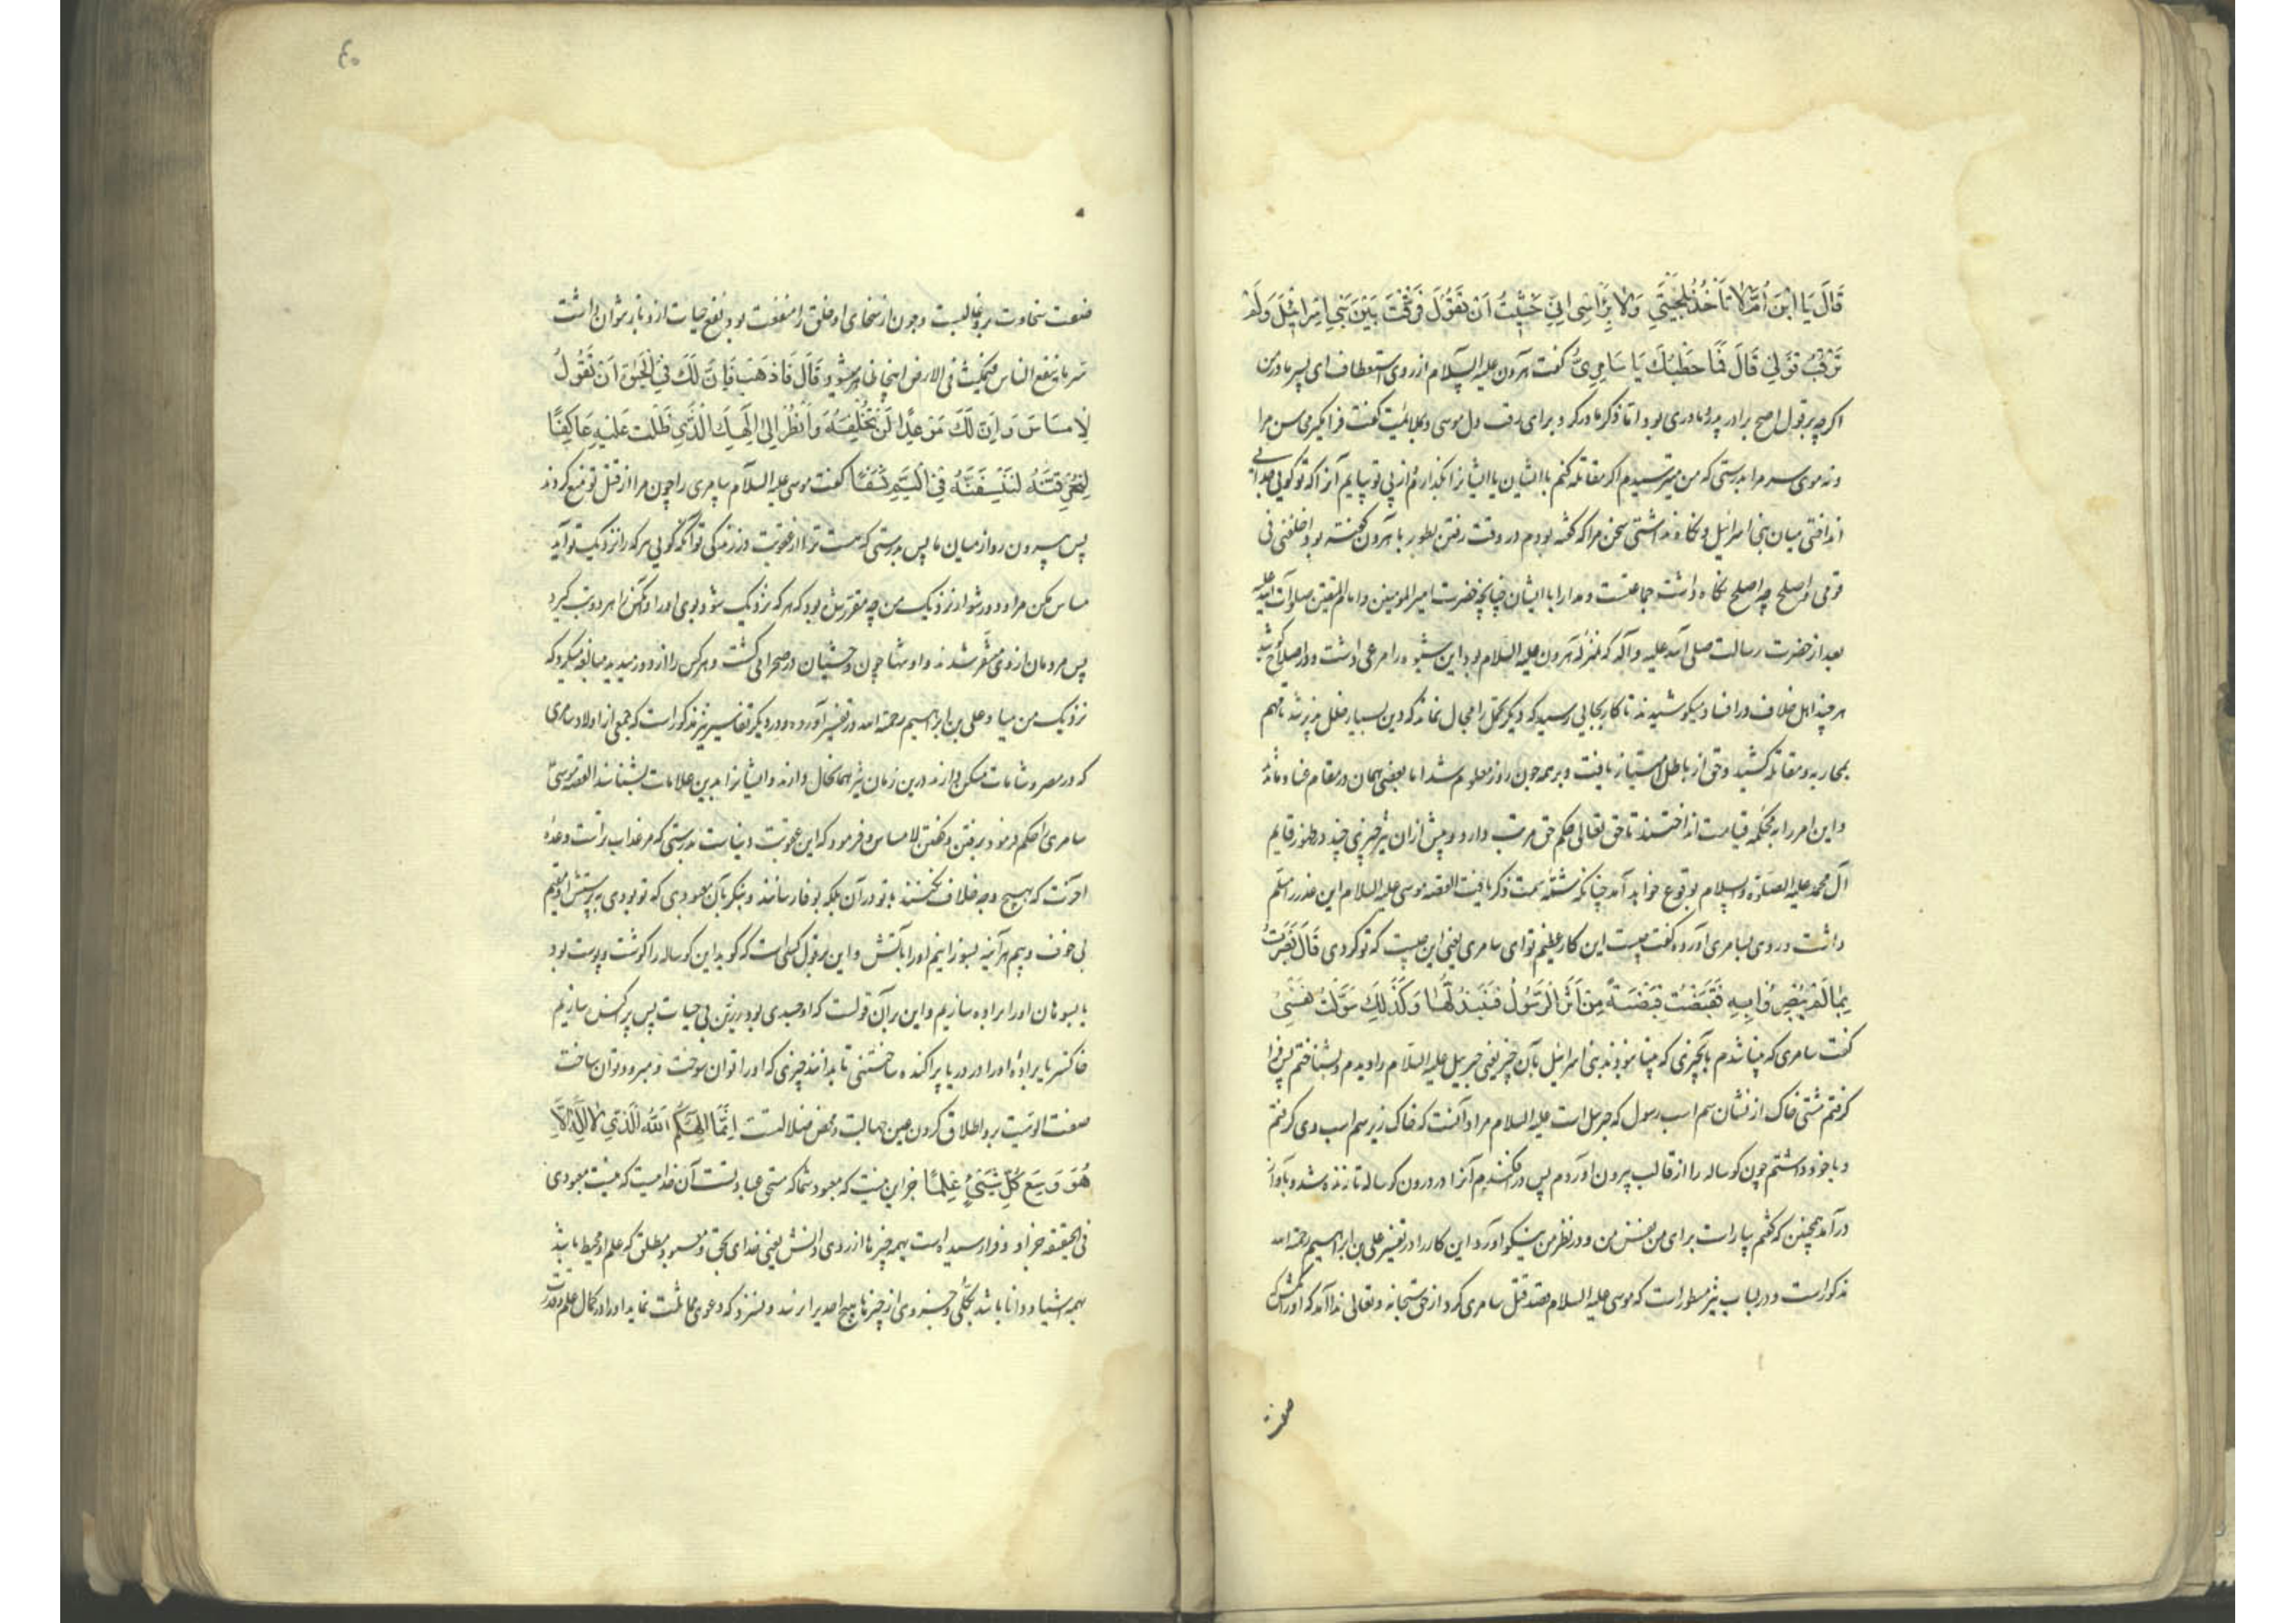 قَالَ يَا ابْنَ أُمَّ لَا تَأْخُذْ بِلِحْيَتِي وَلَا بِرَأْسِي إِنِّي خَشِيتُ أَنْ تَقُولَ فَرَّقْتَ بَيْنَ بَنِي إِسْرَائِيلَ وَلَمْ
تَرْقُبْ قَوْلِي قَالَ فَمَا خَطْبُكَ يَا سَامِرِيُّ گفت هرون علیه السلام از روی استعطاف ای پسر مادر من
اگرچه بر قول اصح برادر پدر و مادری بود اما ذکر مادر کرد برای رقت دل موسی و بملایمت گفت فرا مگیر محاسن مرا
و نه موی سر مرا بدرستی که من میترسیدم اگر مقاتله کنم با ایشان یا ایشانرا بگذارم و از پی تو بیایم آنرا که تو گویی جدایی
انداختی میان بنی اسرائیل و نگاه نداشتی سخن مرا که گفته بودم در وقت رفتن بطور با هرون گفته بود اخلفنی فی
قومی و اصلح چه اصلح نگاه داشت جماعتست و مدارا با ایشان چنانچه حضرت امیرالمومنین و امام المتقین صلوات الله علیه
بعد از حضرت رسالت صلی الله علیه و آله که بمنزله هرون علیه السلام بود این شیوه را مرعی داشت و در اصلاح کوشید
هر چند اهل خلاف در افساد میکوشیدند تا کار بجایی رسید که دیگر تحمل را مجال نماند که دین بسیار خلل پذیر شد تا مهم
بمحاربه و مقاتله کشید و حق از باطل امتیاز یافت و بر همه چون روز معلوم شد اما بعضی همان در مقام عناد مانده
و این امر را به محکمه قیامت انداختند تا حق تعالی حکم حق مرتب دارد و پیش از آن نیز چیزی چند در ظهور قایم
آل محمد علیه الصلوة والسلام بوقوع خواهد آمد چنانکه شمه سمت ذکر یافت القصه موسی علیه السلام این عذر را مسلم
داشت و روی بسامری آورده گفت چیست این کار عظیم تو ای سامری یعنی این چیست که تو کردی قَالَ بَصُرْتُ
بِمَا لَمْ يَبْصُرُوا بِهِ فَقَبَضْتُ قَبْضَةً مِنْ أَثَرِ الرَّسُولِ فَنَبَذْتُهَا وَكَذَلِكَ سَوَّلَتْ لِي نَفْسِي
گفت سامری که بینا شدم بآنچیزی که بینا نبودند بنی اسرائیل بآن چیز یعنی جبرئیل علیه السلام را دیدم و بشناختم پس فرا
گرفتم مشتی خاک از نشان سم اسب رسول که جبرئیل است علیه السلام مراد آنست که خاک زیر سم اسب وی گرفتم
و با خود داشتم چون گوساله را از قالب بیرون آوردم پس در افکندم آنرا در درون گوساله تا زنده شد و بآواز
در آمد همچنین که گفتم بیاراست برای من نفس من و در نظر من نیکو آورد این کار را در تفسیر علی بن ابراهیم رحمه الله
مذکورست و در لباب نیز مسطور است که موسی علیه السلام قصد قتل سامری کرد از حق سبحانه و تعالی ندا آمد که او را مکش که
صفت
٤٠
صفت سخاوت برو غالبست و چون از سخای او خلق را منفعت بود نفع حیات ازو باز نتوان داشت
سر ما ینفع الناس فیمکث فی الارض اینجا ظاهر میشود قَالَ فَاذْهَبْ فَإِنَّ لَكَ فِي الْحَيَاةِ أَنْ تَقُولَ
لَا مِسَاسَ وَإِنَّ لَكَ مَوْعِدًا لَنْ تُخْلَفَهُ وَانْظُرْ إِلَى إِلَهِكَ الَّذِي ظَلْتَ عَلَيْهِ عَاكِفًا
لَنُحَرِّقَنَّهُ ثُمَّ لَنَنْسِفَنَّهُ فِي الْيَمِّ نَسْفًا گفت موسی علیه السلام سامری را چون مرا از قتل تو منع کردند
پس بیرون رو از میان ما پس بدرستی که هست ترا از عقوبت در زندگی تو آنکه گویی هر که را نزدیک تو آید
مساس مکن مرا و دور شو از نزدیک من چه مقرر شده بود که هر که نزدیک شود بوی او را و آنکس را هر دو تب گیرد
پس مردمان از وی متنفر شدند و او تنها چون وحشیان در صحرا می گشت و هر کس را از دور میدید مبالغه میکرد که
نزدیک من میا و علی بن ابراهیم رحمه الله در تفسیر آورده و در دیگر تفاسیر نیز مذکور است که جمعی از اولاد سامری
که در مصر و شامات مسکن دارند درین زمان نیز همان حال دارند و ایشانرا بدین علامات بشناسند القصه موسی
سامری را حکم فرمود برفتن و گفتن لامساس و فرمود که این عقوبت دنیاست بدرستی که مر عذاب تراست وعده
آخرت که بهیچ وجه خلاف نکنند با تو در آن بلکه بوفا رسانند و بنگر بآن معبودی که تو بودی به پرستش او مقیم
بی خوف و بیم هرآینه بسوزانیم او را بآتش و این بر قول کسی است که گوید این گوساله را گوشت و پوست بود
یا بسوهان او را براده سازیم و این بر آن قولست که او جسدی بود زرین بی حیات پس پراکنده سازیم
خاکستر یا براده او را در دریا پراکنده ساختنی تا بدانند چیزی که او را توان سوخت و نمیرد و توان ساخت
صفت الوهیت برو اطلاق کردن عین جهالت و محض ضلالتست إِنَّمَا إِلَهُكُمُ اللَّهُ الَّذِي لَا إِلَهَ إِلَّا
هُوَ وَسِعَ كُلَّ شَيْءٍ عِلْمًا جز این نیست که معبود شما که مستحق عبادتست آن خداییست که نیست معبودی
فی الحقیقه جز او و فرا رسیده است بهمه چیزها از روی دانش یعنی خدای بحق و معبود مطلق که علم او محیط باشد
بهمه اشیا و دانا باشد بکلی و جزوی از چیزها هیچ احدی را نرسد و نسزد که دعوی مماثلت نماید او را در کمال علم و قدرت